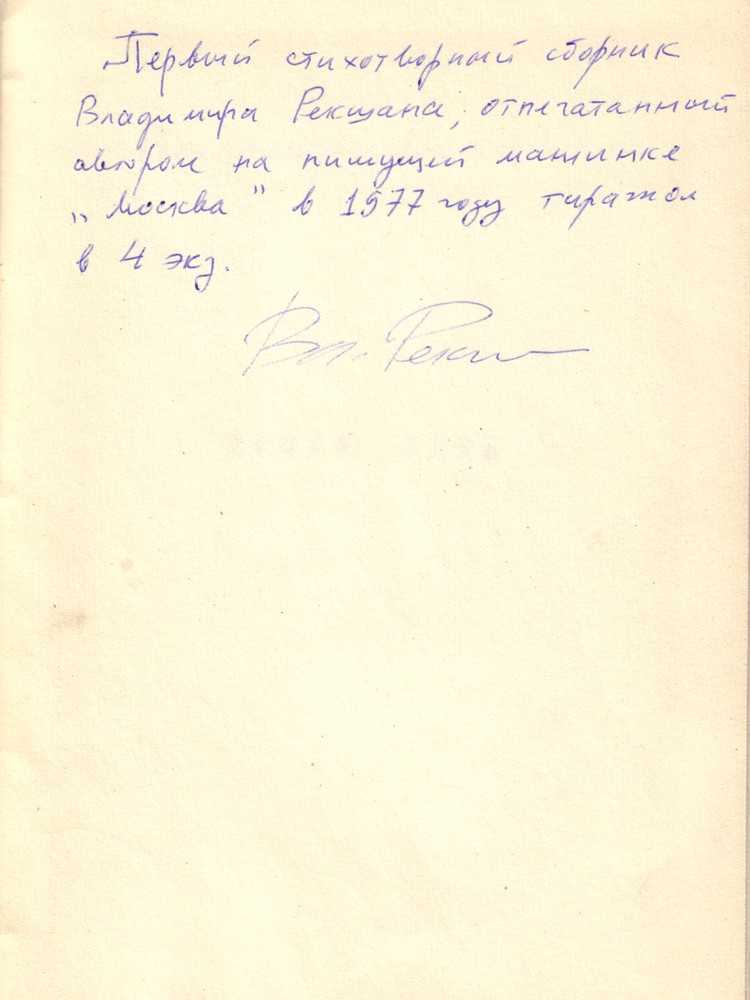 Первый стихотворный сборник
Владимира Рекшана, отпечатанный
автором на пишущей машинке
„Москва" в 1977 году тиражом
в 4 экз.
Вл. Рекш